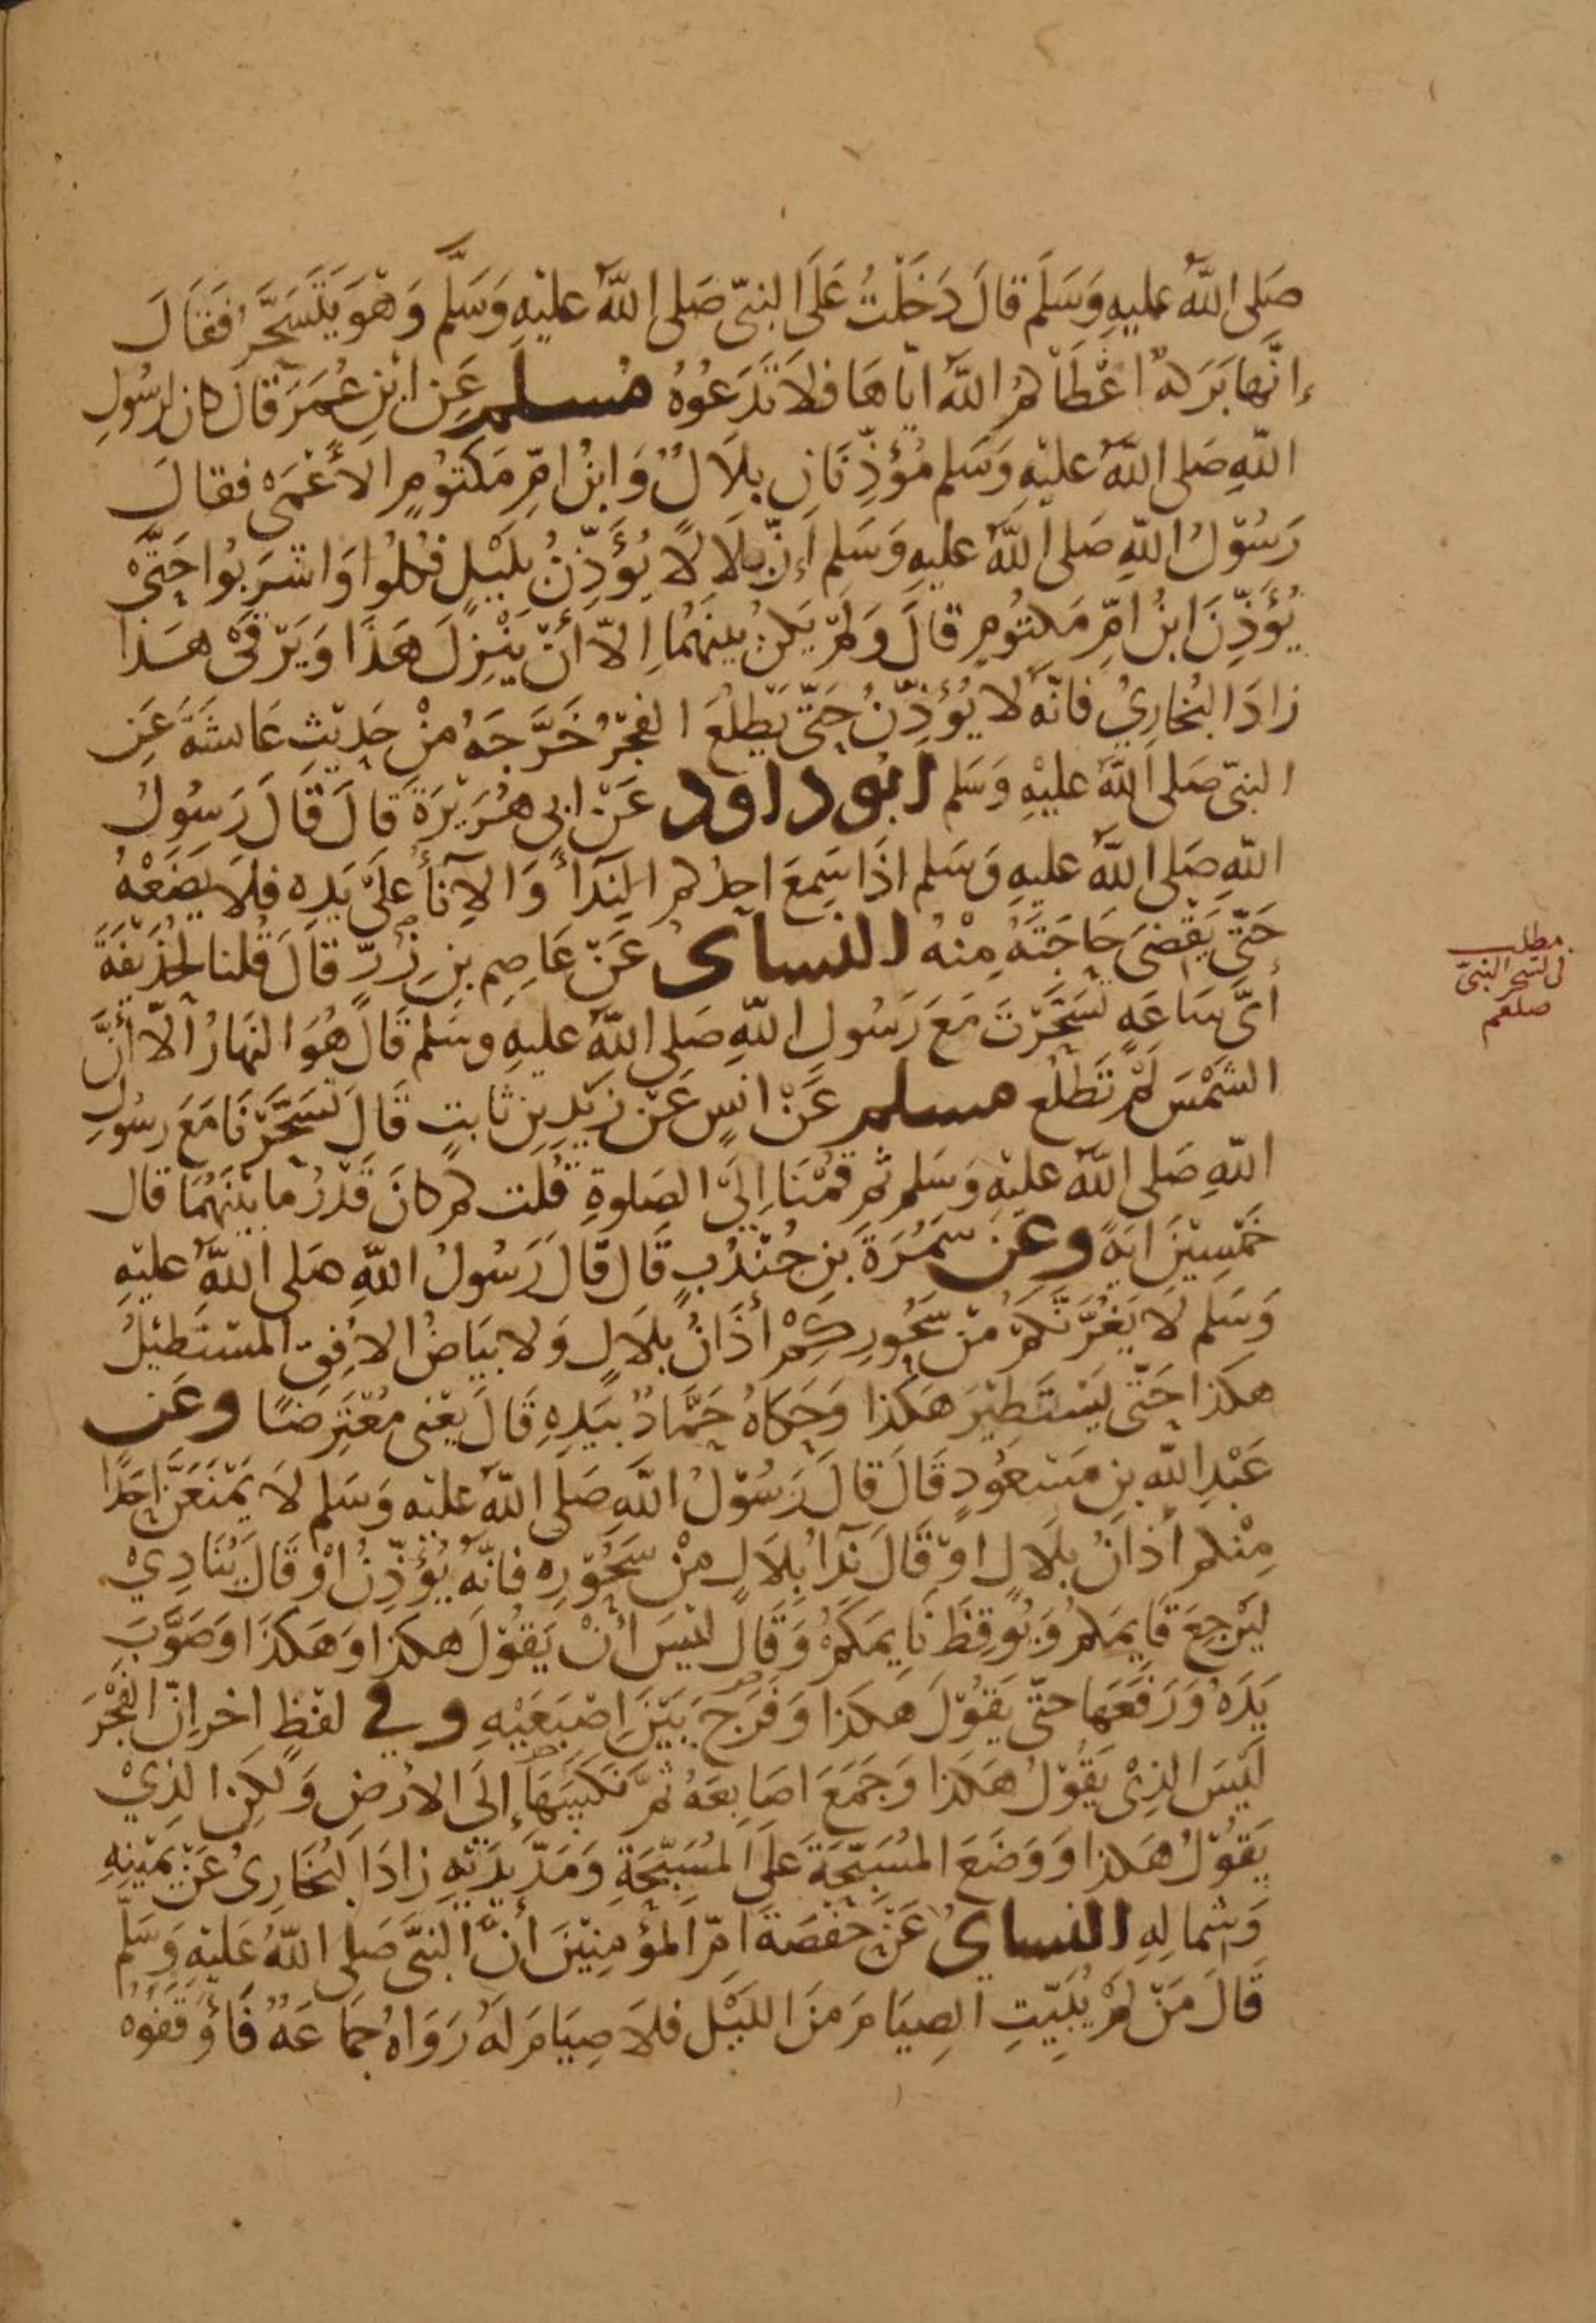 صَلى اللهُ عليهِ وَسَلَم قالَ دَخَلْتُ عَلَى النبيّ صَلى اللهُ عليْهِ وَسَلَّم وَهُوَ يَتَسَحَّرُ فَقَالَ
إنَّها بَرَكةٌ اعْطَاكمُ اللهُ اياهَا فلاَ تَدَعُوُهُ مُسلم عَن ابْنِ عُمَرَ قَالَ كان لرسُولِ
اللهِ صَلى اللهُ عليْهِ وَسَلم مُؤذِّنَانِ بلاَلٌ وَابنُ امِّ مَكتوُمٍ الأعْمَى فقالَ
رَسُوْلُ اللهِ صَلى اللهُ عليهِ وَسَلم إنّ بلاَلاً يُؤَذِّنُ بلَيْلٍ فكُلوُا وَاشرَبُوا حَتَّى
يُؤَذِّنَ ابنُ امِّ مَكتوُمٍ قالَ وَلمْ يَكنْ بينَهُمَا إلاّ أنْ يَنْزِلَ هَذا وَيَرْقَى هَذا
زادَ البُخارِيُ فانّه لا يُؤذِّنُ حَتّى يَطلُعَ الفجْرُ خَرَّجَهُ مِنْ حَديْثِ عَايشَةَ عَنِ
النبيّ صَلى اللهُ عليْهِ وَسَلم ابوُ داود عَنْ ابى هُرَيْرَةَ قالَ قَالَ رَسوُلُ
اللهِ صَلى اللهُ عليهِ وَسَلم اذَا سَمِعَ احدُكم النِدَأَ وَالآنَأُ عَلَى يَدِهِ فلاَ يَضَعْهُ
حَتّى يَقْضِىَ حَاجَتَهُ مِنْهُ النساى عَنْ عَاصِم بنِ زِرّ قالَ قُلنا لحُذَيْفَةَ
أىَّ سَاعَةٍ تسَحَّرْتَ مَعَ رَسُولِ اللهِ صَلى اللهُ عليهِ وسَلم قَالَ هُوَ النهَارُ الاّ أنَّ
الشمْسَ لَمْ تَطْلُع مسلم عَنْ انسٍ عَنْ زَيْدِ بنِ ثابتٍ قَالَ تسَحَّرْنَا مَعَ رسُولِ
اللهِ صَلى اللهُ عليْهِ وَسَلم ثم قمْنَا إلَى الصَلوةِ قُلت كم كانَ قَدْرُ ما بَيْنَهُمَا قال
خَمْسِيْنَ ايَةً وعن سَمُرَةَ بنِ جُنْدُبٍ قَال قَالَ رَسُولُ اللهِ صَلى اللهُ عليْهِ
وَسَلم لاَ يَغُرَّنَّكمْ مِنْ سَحُورِكمْ أذَانُ بلاَلٍ وَلا بَيَاضُ الافُقِ المسْتَطيْلُ
هكذا حَتّى يَسْتَطيْرَ هَكذا وَحَكاهُ حَمَّادٌ بيَدِهِ قَالَ يَعْنى مُعْتَرِضًا وعَن
عَبْدِ اللهِ بنِ مَسْعُودٍ قَالَ قالَ رَسُوْلُ اللهِ صَلَى اللهُ عليْهِ وَسَلم لاَ يَمْنَعَنَّ احَدًا
مِنْكم أذانُ بلاَلٍ اوْ قَالَ نِدَأُ بلاَلٍ مِنْ سَحُوْرِهِ فانّهُ يُؤَذِّنُ اوْ قَالَ يُنَادِيْ
ليَرْجِعَ قَايمَكم وَيُوقِظَ نَايمَكمْ وَقَال ليْسَ أنْ يَقوُلَ هكذا وَهَكذَا وَصَوَّبَ
يَدَهُ وَرَفَعَهَا حتّى يَقُوْلَ هكَذا وَفَرَجَ بَيْنَ اصْبَعَيْهِ وفي لفظٍ اخر إنّ الفَجْرَ
لَيْسَ الذِىْ يَقُوْلُ هَكَذا وَجَمَعَ اصَابعَهُ ثمَّ نَكسَهَا إلَى الارْضِ وَلَكِن الذِيْ
يَقُوْلُ هَكذا وَوَضَعَ المُسَبّحَةَ عَلَى المُسَبّحَةِ وَمَدّ يَدَيْهِ زادَ البُخَارِىُ عَنْ يَمْيْنِهِ
وَشمالِهِ النسايُ عَنْ حَفْصَةَ امِّ المُؤمِنِيْنَ أنَّ النبَّى صَلى اللهُ عَليْهِ وَسَلّم
قَالَ مَنْ لمْ يُبَيّتِ الصِيَامَ مِنَ الليْلِ فلاَ صِيَامَ لَهُ رَوَاهُ جمَاعَةٌ فَأوْقفوُهُ
مطلب
فى تسحر النبيّ
صلعم